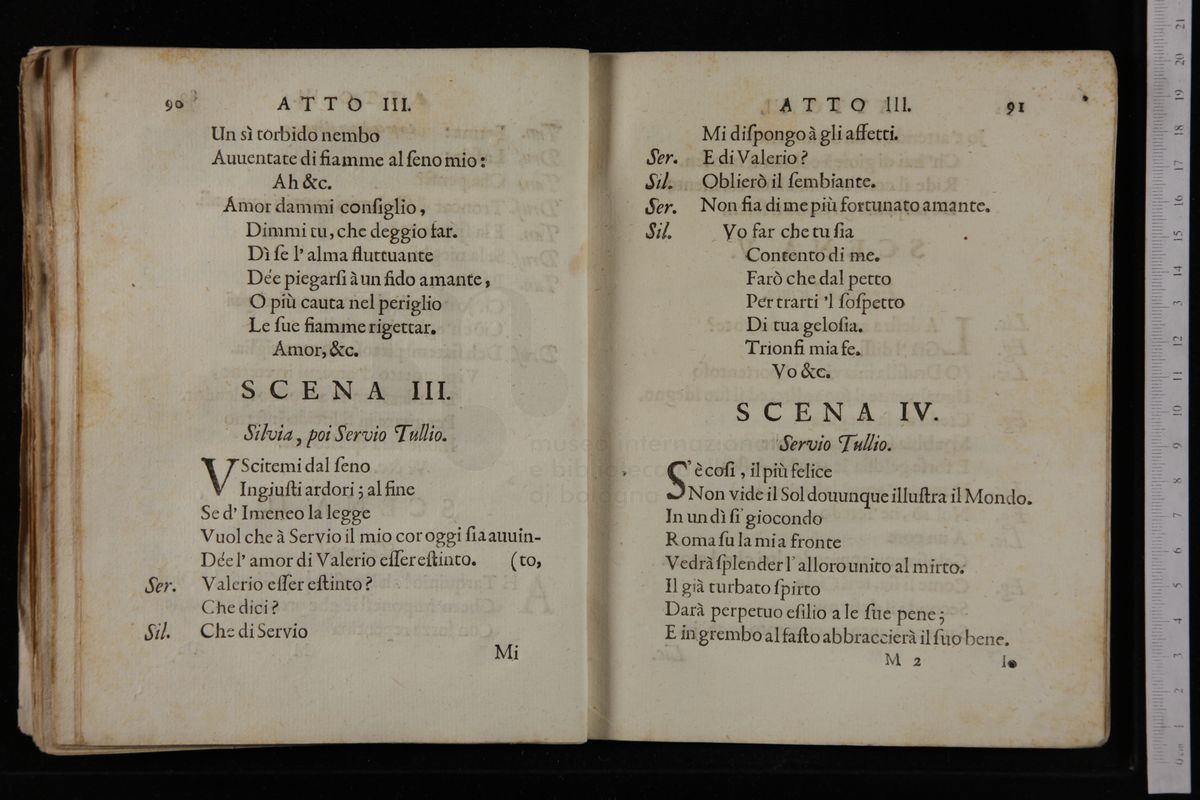 90 ATTO III.
Un sì torbido nembo
Auuentate di fiamme al ſeno mio:
Ah &c.
Amor dammi conſiglio,
Dimmi tu, che deggio far.
Dì ſe l' alma fluttuante
Dée piegarſi à un fido amante,
O più cauta nel periglio
Le ſue fiamme rigettar.
Amor, &c.
SCENA III.
Silvia, poi Servio Tullio.
VScitemi dal ſeno
Ingiuſti ardori; al fine
Se d' Imeneo la legge
Vuol che à Servio il mio cor oggi ſia auuin-
Dée l' amor di Valerio eſſer eſtinto. (to,
Ser. Valerio eſſer eſtinto?
Che dici?
Sil. Che di Servio
Mi
ATTO III. 91
Mi diſpongo à gli affetti.
Ser. E di Valerio?
Sil. Oblierò il ſembiante.
Ser. Non fia di me più fortunato amante.
Sil. Vo far che tu ſia
Contento di me.
Farò che dal petto
Per trarti 'l ſoſpetto
Di tua geloſia.
Trionfi mia fe.
Vo &c.
SCENA IV.
Servio Tullio.
S' è coſi, il più felice
Non vide il Sol douunque illuſtra il Mondo.
In un dì ſi giocondo
Roma ſu la mia fronte
Vedrà ſplender l' alloro unito al mirto.
Il già turbato ſpirto
Darà perpetuo eſilio a le ſue pene;
E in grembo al faſto abbraccierà il ſuo bene.
M 2
museo internazional
e biblioteca
di bologna